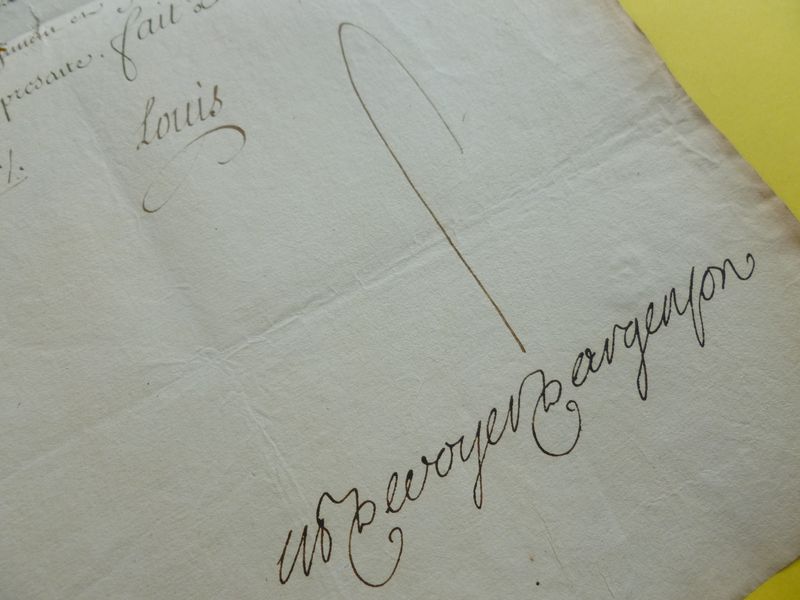 presante. fait
Louis
M P de voyer d argenson